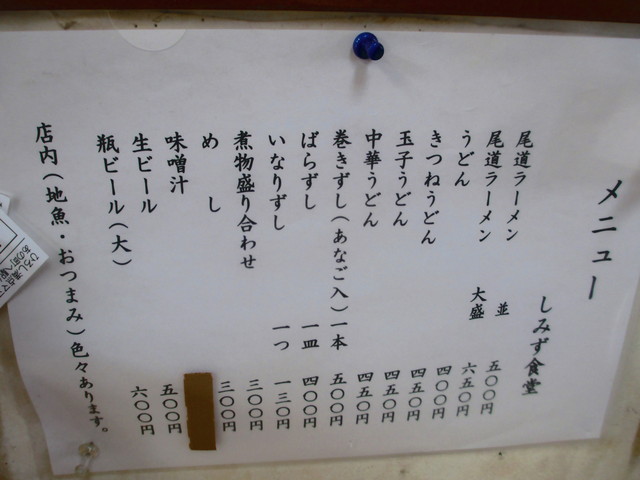 メニュー
しみず食堂
尾道ラーメン 並 五〇〇円
尾道ラーメン 大盛 六五〇円
うどん 四〇〇円
きつねうどん 四五〇円
玉子うどん 四五〇円
中華うどん 四五〇円
巻きずし(あなご入)一本 五〇〇円
ばらずし 一皿 四〇〇円
いなりずし 一つ 一三〇円
煮物盛り合わせ 三〇〇円
めし 三〇〇円
味噌汁
生ビール 五〇〇円
瓶ビール(大) 六〇〇円
店内(地魚・おつまみ)色々あります。